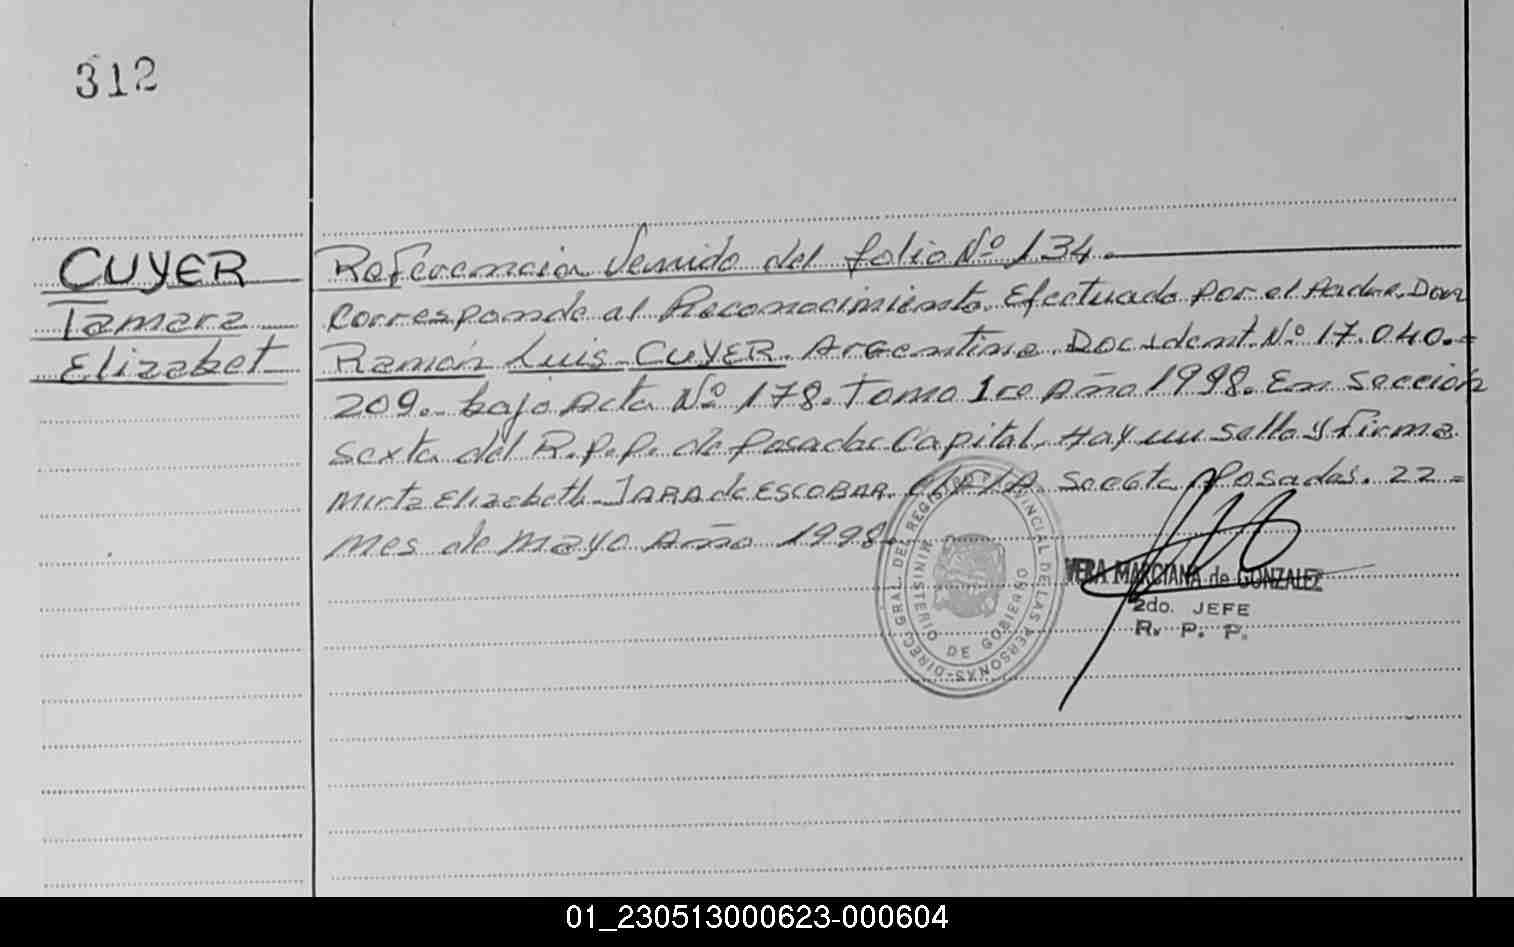 312
CUYER
Tamara
Elizabet
Referencia Venido del folio Nº 134.
Corresponde al Reconocimiento Efectuado Por el Padre Don
Ramón Luis CUYER. Argentino. Doc. Ident. Nº 17.040.=
209. bajo Acta Nº 178. Tomo 1ro Año 1998. En sección
sexta del R.P.P. de Posadas Capital. Hay un sello y firma
Mirta Elizabeth JARA de ESCOBAR. Posadas. 22=
Mes de Mayo Año 1998.
DIREC. GRAL. DEL REGISTRO PROVINCIAL DE LAS PERSONAS
MINISTERIO DE GOBIERNO
VERA MARCIANA de GONZALEZ
2do. JEFE
R. P. P.
01_230513000623-000604